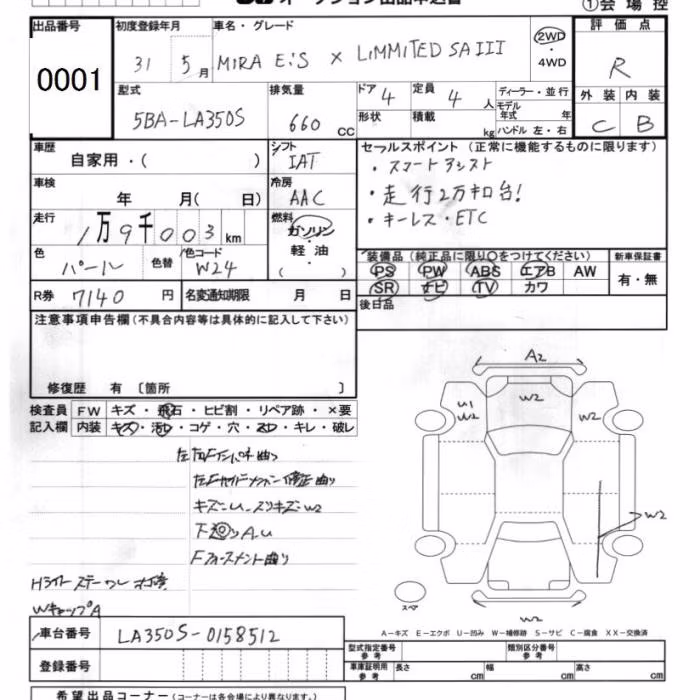 ①会場控
出品番号
0001
初度登録年月
31 5月
車名・グレード
MIRA E:S X LIMMITED SA III
2WD
・4WD
評価点
R
型式
5BA-LA350S
排気量
660 CC
ドア 4
定員 4 人
形状
積載 kg
ディーラー・並行
モデル年式 年
ハンドル 左・右
外装
内装
C
B
車歴
自家用・( )
シフト
IAT
セールスポイント(正常に機能するものに限ります)
・スマートアシスト
・走行2万キロ台!
・キーレス・ETC
車検
年 月( 日)
冷房
AAC
走行
1万9千003km
燃料
ガソリン
・
軽油
( )
色
パール
色替
色コード
W24
装備品(純正品に限り○をつけてください)
PS PW ABS エアB AW
SR ナビ TV カワ
新車保証書
有・無
R券
7140 円
名変通知期限 月 日
後日品
注意事項申告欄(不具合内容等は具体的に記入して下さい)
修復歴 有〔箇所 〕
検査員
記入欄
FW キズ・飛石・ヒビ割・リペア跡・×要
内装 キズ・汚れ・コゲ・穴・スレ・キレ・破レ
キズ=U スリキズW2
下廻りA.U
WキャップA
A2
W2
U1
W2
W2
W2
W2
スペア
A-キズ E-エクボ U-凹み W-補修跡 S-サビ C-腐食 XX-交換済
車台番号
LA350S-0158512
登録番号
型式指定番号
参考
類別区分番号
参考
車庫証明用
参考
長さ cm
幅 cm
高さ cm
希望出品コーナー(コーナーは各会場により異なります)